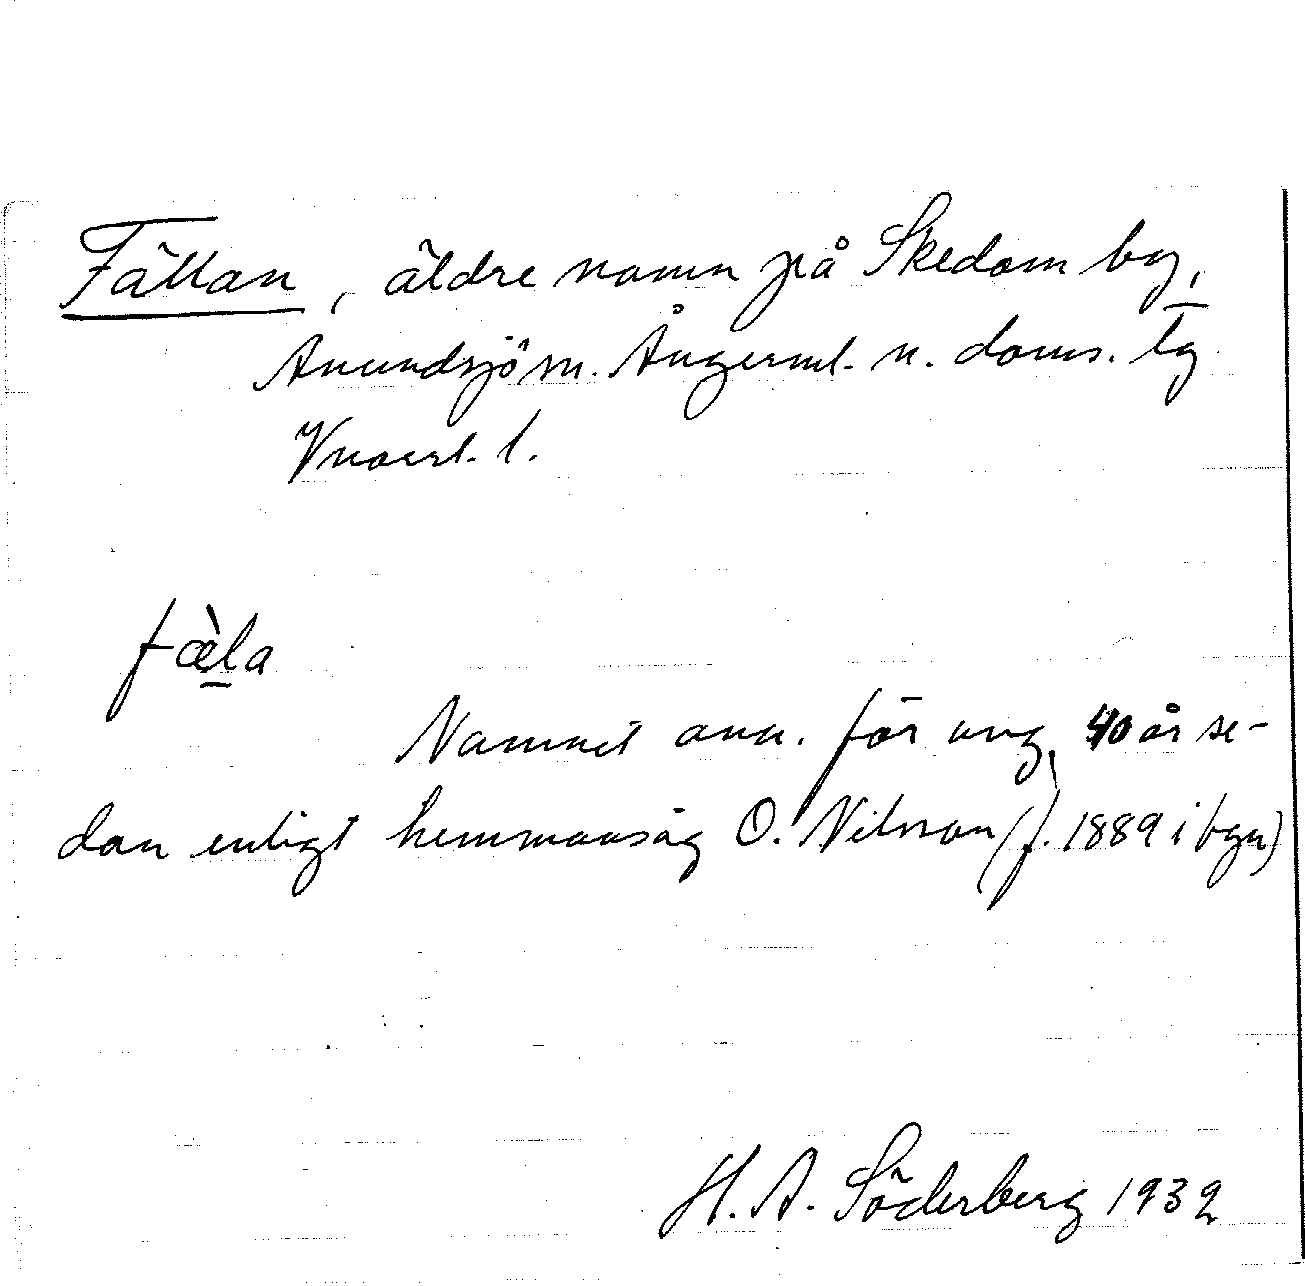 Fällan, äldre namn på Skedom by,
Anundsjö sn. Ångerml. n. doms. lg
Vnorrl. l.
fæ̀la
Namnet anv. för ung. 40 år se-
dan enligt hemmansäg O. Nilsson (f. 1889 i byn)
H. A. Söderberg 1932